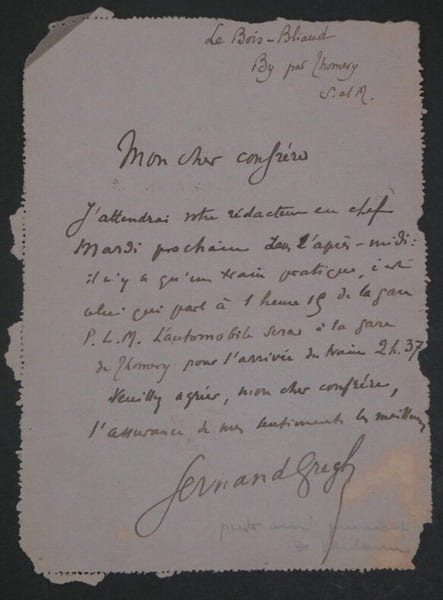 Le Bois-Bliaud
By par Thomery
S. et M.
Mon cher confrère
J'attendrai votre rédacteur en chef
Mardi prochain dans l'après-midi :
il n'y a qu'un train pratique, c'est
celui qui part à 1 heure 15 de la gare
P. L. M. L'automobile sera à la gare
de Thomery pour l'arrivée du train 2 h. 37
Veuillez agréer, mon cher confrère,
l'assurance de mes sentiments les meilleurs
Fernand Gregh